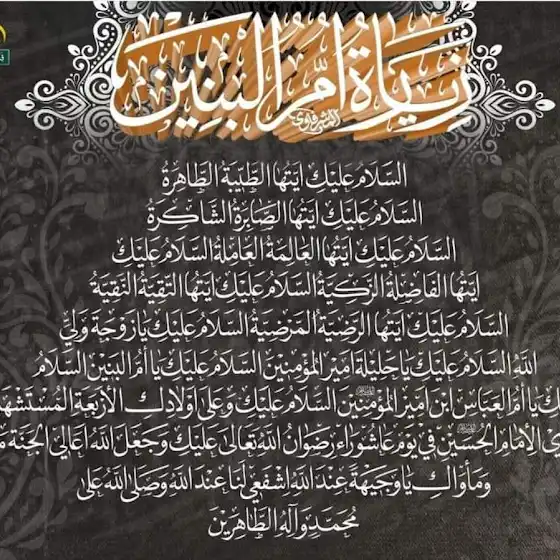 زيارة أم البنين
السَّلَامُ عَلَيْكِ ايَّتُهَا الطَّيِّبَةُ الطَّاهِرَةُ
السَّلَامُ عَلَيْكِ ايَّتُهَا الصَّابِرَةُ الشَّاكِرَةُ
السَّلَامُ عَلَيْكِ ايَّتُهَا العَالِمَةُ العَامِلَةُ السَّلَامُ عَلَيْكِ
ايَّتُهَا الفَاضِلَةُ الزَّكِيَّةُ السَّلَامُ عَلَيْكِ ايَّتُهَا التَّقِيَّةُ النَّقِيَّةُ
السَّلَامُ عَلَيْكِ ايَّتُهَا الرَّضِيَّةُ المَرْضِيَّةُ السَّلَامُ عَلَيْكِ يَا زَوْجَةَ وَلِيِّ
اللهِ السَّلَامُ عَلَيْكِ يَا حَلِيلَةَ امِيرِ المُؤْمِنِينَ السَّلَامُ عَلَيْكِ يَا أُمَّ البَنِينَ السَّلَامُ
يَا أُمَّ العَبَّاسِ ابْنِ امِيرِ المُؤْمِنِينَ السَّلَامُ عَلَيْكِ وَعَلَى اوْلَادِكِ الأَرْبَعَةِ
الإِمَامِ الحُسَيْنِ فِي يَوْمِ عَاشُورَاءَ رِضْوَانُ اللهِ تَعَالَى عَلَيْكِ وَجَعَلَ اللهُ اعَالِيَ الجَنَّةِ
وَمَأْوَاكِ يَا وَجِيهَةً عِنْدَ اللهِ اشْفَعِي لَنَا عِنْدَ اللهِ وَصَلَّى اللهُ عَلَى
مُحَمَّدٍ وَآلِهِ الطَّاهِرِينَ